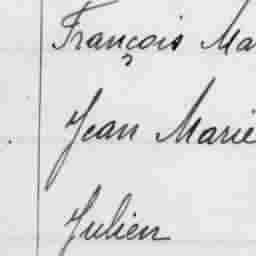 François Ma
Jean Marie
Julien